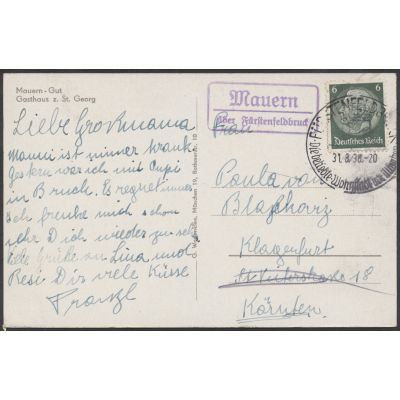 Mauern - Gut
Gasthaus z. St. Georg
Liebe Großmama
Mami ist immer krank
Gestern war ich mit Cupi
in Bruck. Es regnet immer
Ich freue mich schon
sehr Dich wieder zu
Grüße an Lina und
Resi Dir viele Küsse
Franzl
Mauern
über Fürstenfeldbruck
6 6
Deutsches Reich
31.8.38.-20
Frau
Paula von
Klagenfurt
18
Kärnten